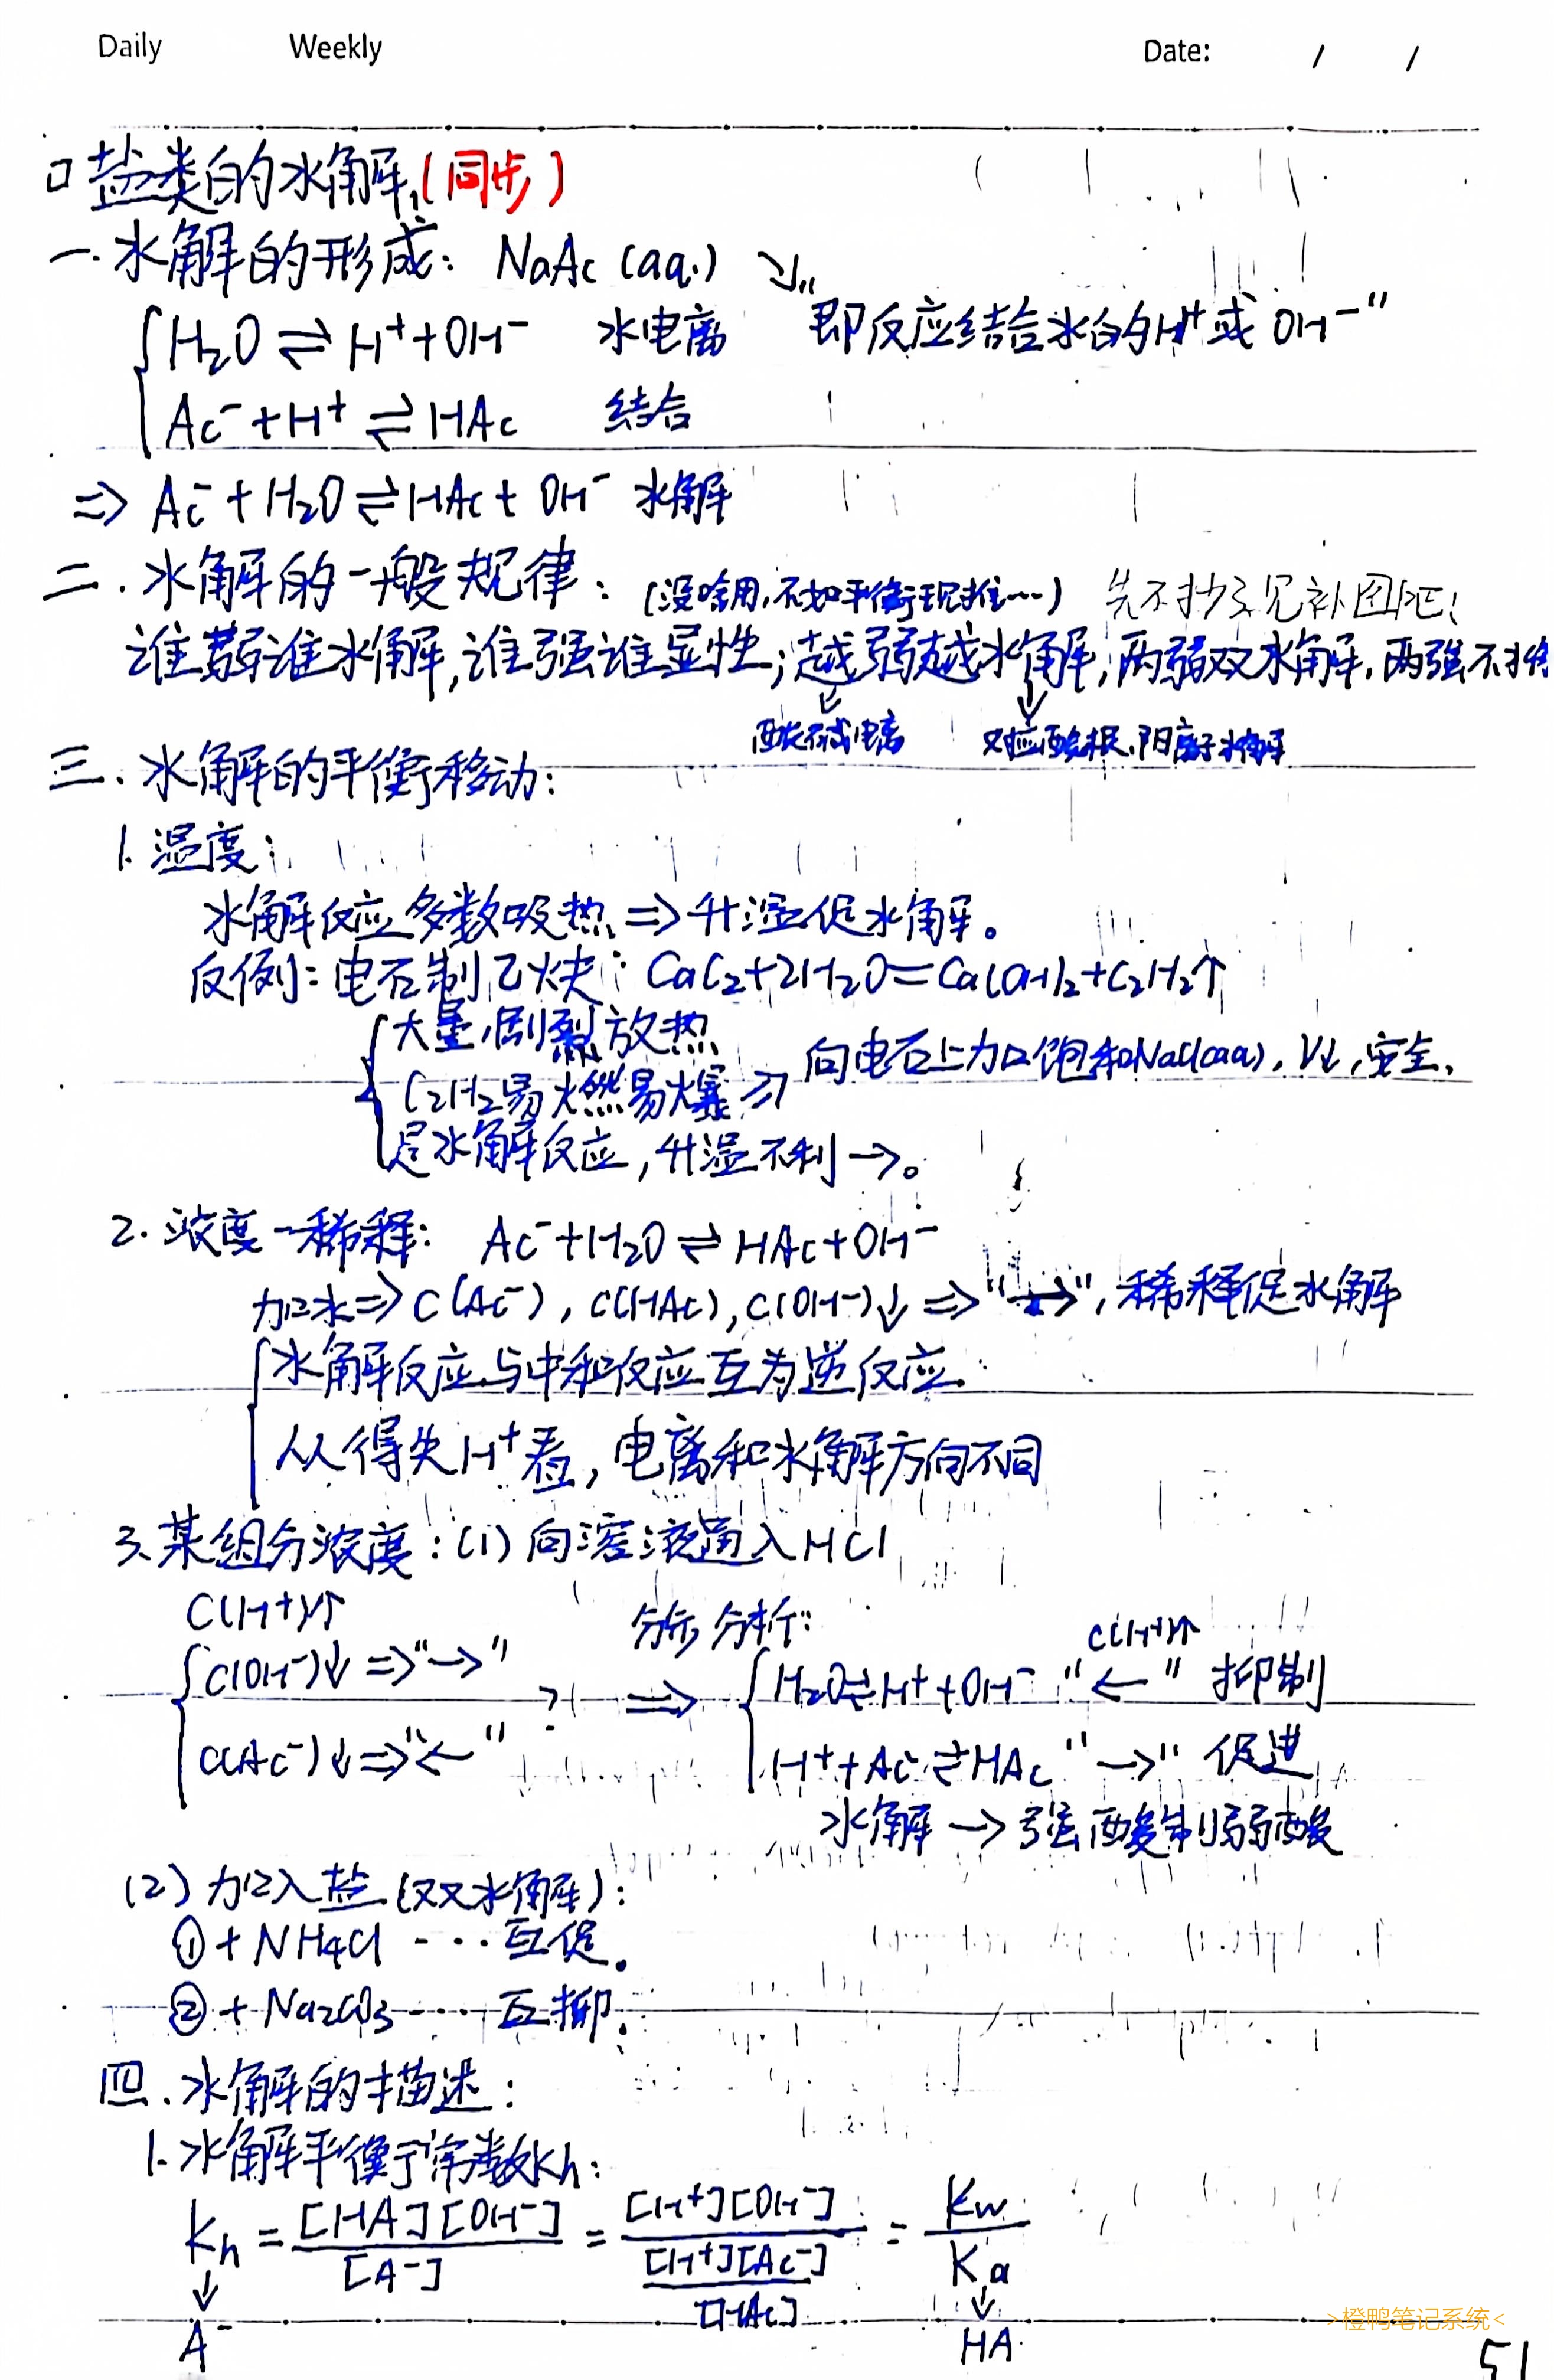 Daily Weekly Date: / /
口盐类的水解(同步)
一.水解的形成: NaAc (aq.) ↘
{H₂O ⇌ H⁺+OH⁻ 水电离 "即反应结合水的H⁺或OH⁻"
Ac⁻+H⁺ ⇌ HAc 结合
⇒ Ac⁻+H₂O⇌HAc+OH⁻ 水解
二.水解的一般规律: (没啥用,不如平衡现推…) 先不抄了见补图吧!
谁弱谁水解,谁强谁显性;越弱越水解,两弱双水解,两强不水解
↓酸碱电离 ↓对应酸根.阳离子水解
三.水解的平衡移动:
1.温度:
水解反应多数吸热⇒升温促水解。
反例:电石制乙炔: CaC₂+2H₂O=Ca(OH)₂+C₂H₂↑
{大量,剧烈放热
C₂H₂易燃易爆 ⇒ 向电石上加饱和NaCl(aq), V↓,安全.
是水解反应,升温不利→。
2.浓度-稀释: Ac⁻+H₂O⇌HAc+OH⁻
加水⇒c(Ac⁻),c(HAc),c(OH⁻)↓⇒"→",稀释促水解
{水解反应与中和反应互为逆反应
从得失H⁺看,电离和水解方向不同
3.某组分浓度:(1)向溶液通入HCl
c(H⁺)↑ 分步分析: c(H⁺)↑
{c(OH⁻)↓⇒"→" ? ⇒ {H₂O⇌H⁺+OH⁻ "←" 抑制
c(Ac⁻)↓⇒"←" H⁺+Ac⁻⇌HAc "→" 促进
水解→强酸制弱酸
(2)加入盐(双水解):
①+NH₄Cl …互促.
②+Na₂CO₃ …互抑.
四.水解的描述:
1.水解平衡常数Kh:
Kh = [HA][OH⁻]/[A⁻] = [H⁺][OH⁻]/([H⁺][Ac⁻]/[HAc]) = Kw/Ka
↓ ↓
A⁻ HA
>橙鸭笔记系统<
51